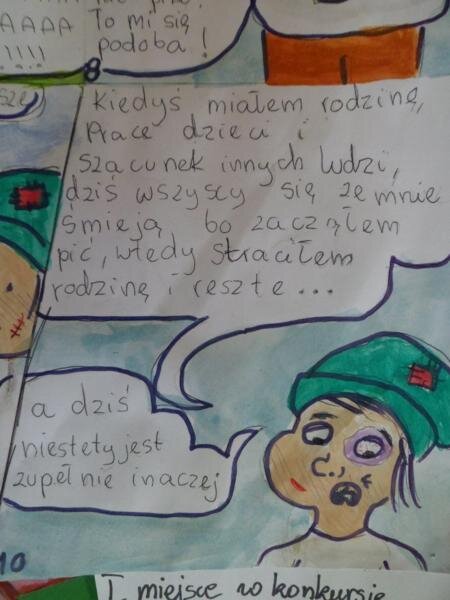 AAAA
!!!!
To mi się
podoba!
8
Kiedyś miałem rodzinę,
Prace dzieci i
szacunek innych ludzi,
dziś wszyscy się ze mnie
śmieją bo zacząłem
pić, wtedy straciłem
rodzinę i reszte...
a dziś
niestety jest
zupełnie inaczej
10
I miejsce w konkursie